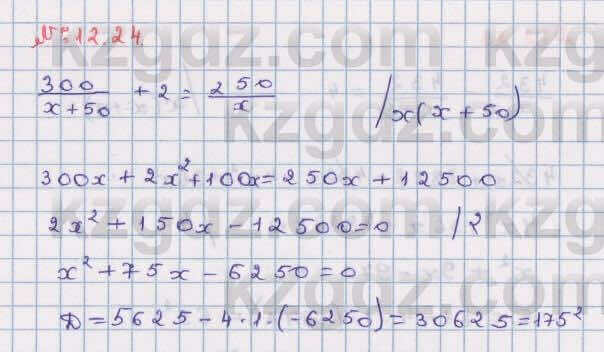 № 12.24.
300/(x+50) + 2 = 250/x /x(x+50)
300x + 2x² + 100x = 250x + 12500
2x² + 150x - 12500 = 0 /2
x² + 75x - 6250 = 0
D = 5625 - 4·1·(-6250) = 30625 = 175²
kzgdz.com